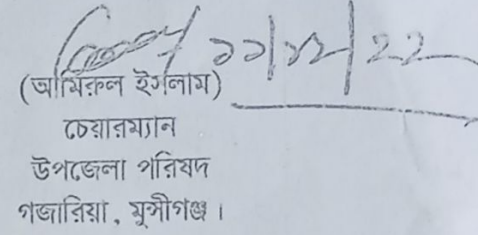 ১১/১২/২২
(আমিরুল ইসলাম)
চেয়ারম্যান
উপজেলা পরিষদ
গজারিয়া, মুন্সীগঞ্জ।